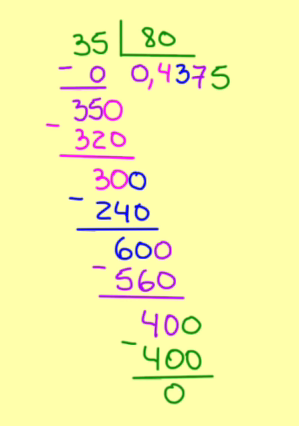 35 | 80
- 0 0,4375
350
- 320
300
- 240
600
- 560
400
- 400
0